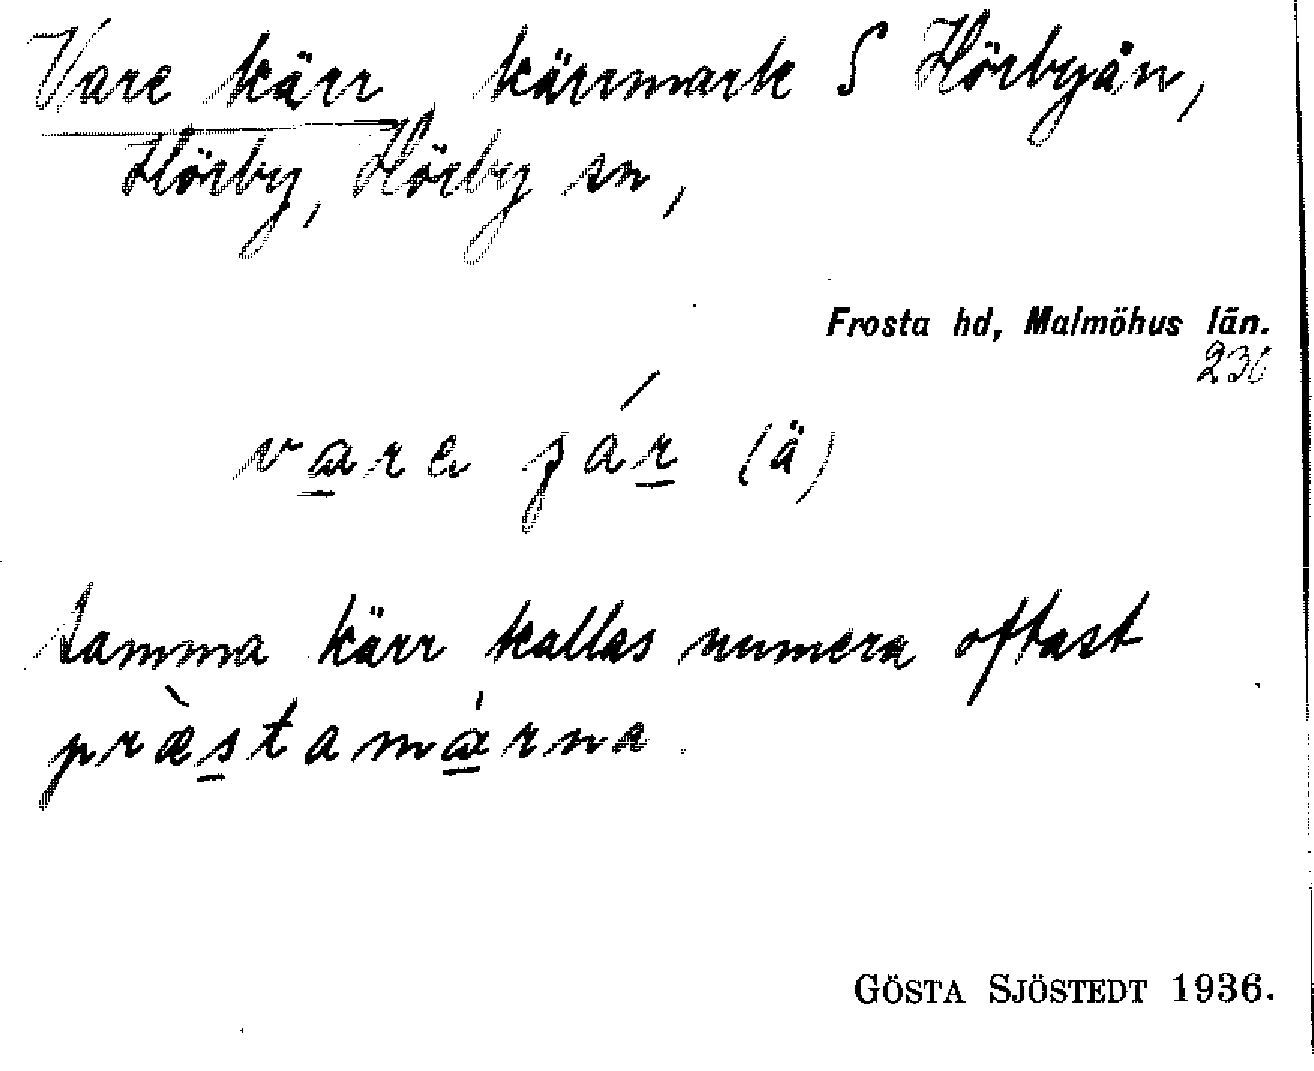 Vare kärr, kärrmark S Hörbyån,
Hörby, Hörby sn,
Frosta hd, Malmöhus län.
230
vare ɟár (ä)
Samma kärr kallas numera oftast
præstamarna.
GÖSTA SJÖSTEDT 1936.